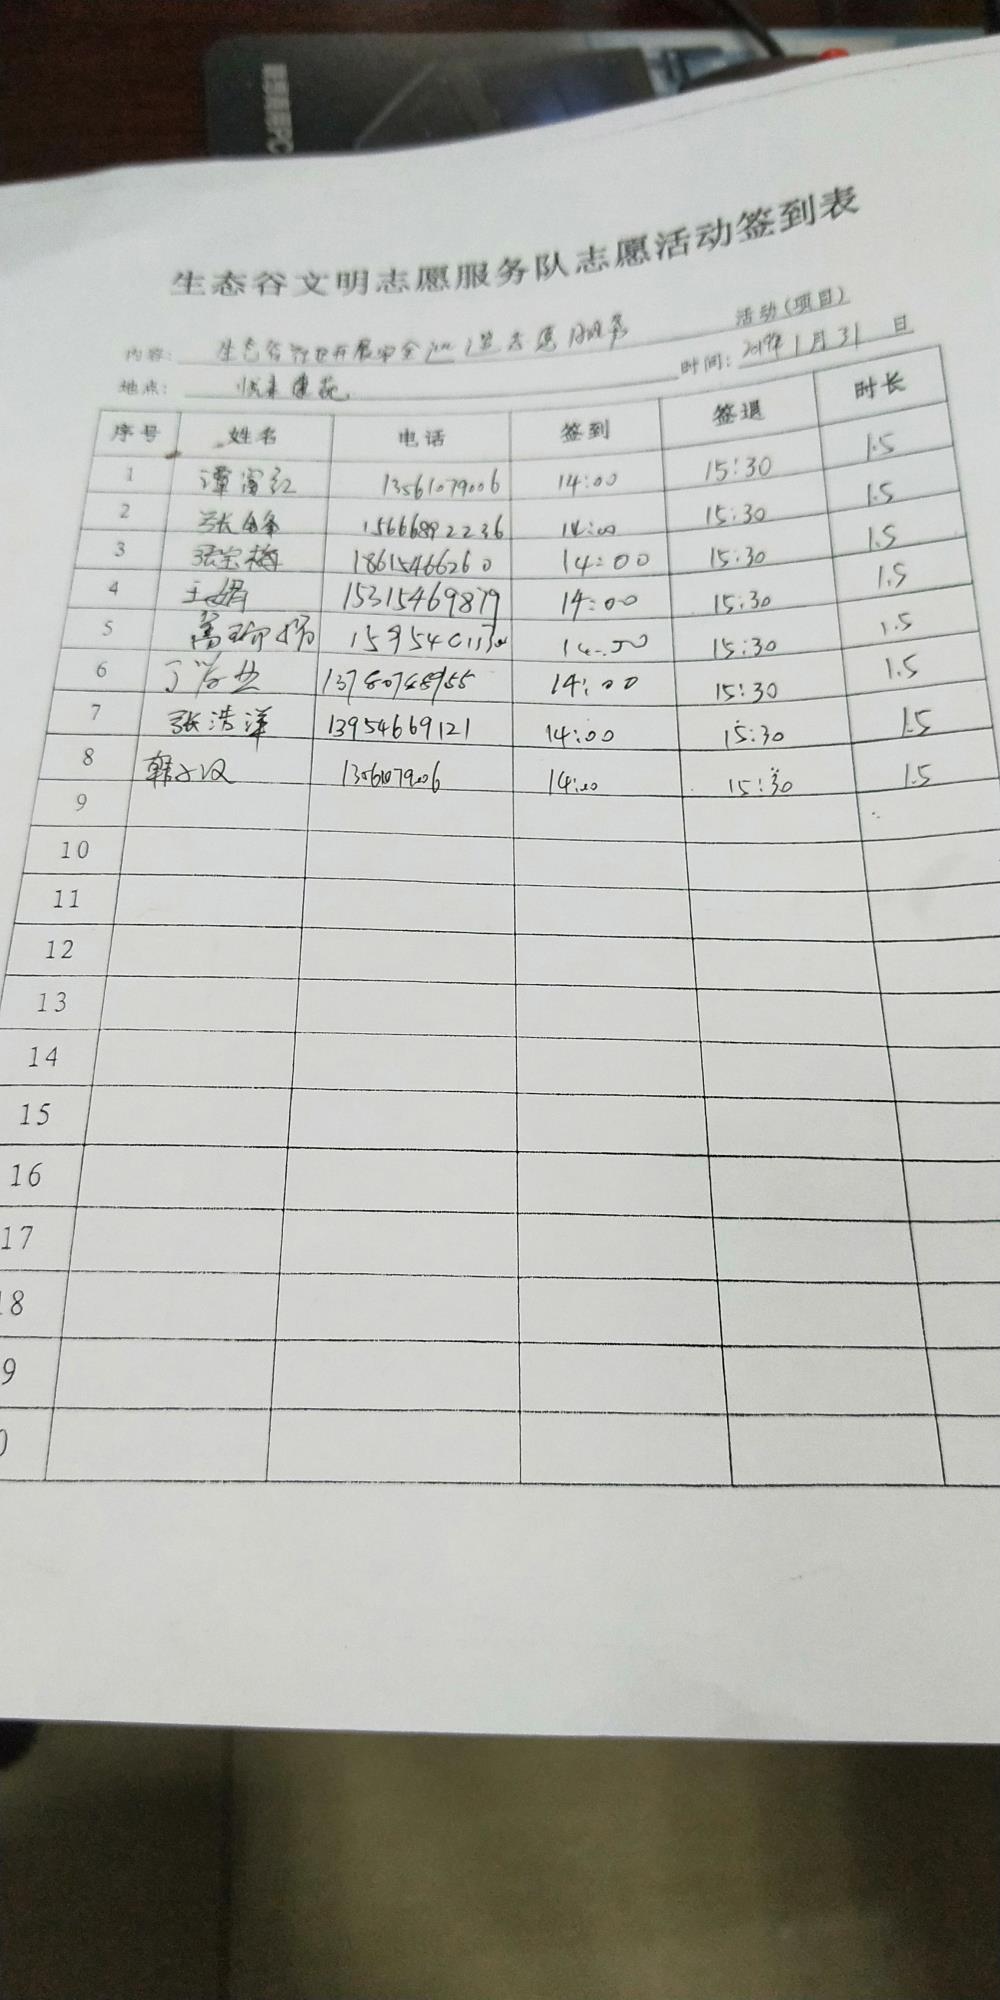 生态谷文明志愿服务队志愿活动签到表
内容： 生态谷 开展安全 志愿服务 活动(项目)
地点： 时间：2019年1月31日
序号 姓名 电话 签到 签退 时长
1 谭富红 13561079006 14:00 15:30 1.5
2 张峰 15666892236 14:00 15:30 1.5
3 张宝梅 18615466260 14:00 15:30 1.5
4 王娟 15315469879 14:00 15:30 1.5
5 15:30 1.5
6 14:00 15:30 1.5
7 张浩洋 13954669121 14:00 15:30 1.5
8 14:00 15:30 1.5
9
10
11
12
13
14
15
16
17
18
9
0